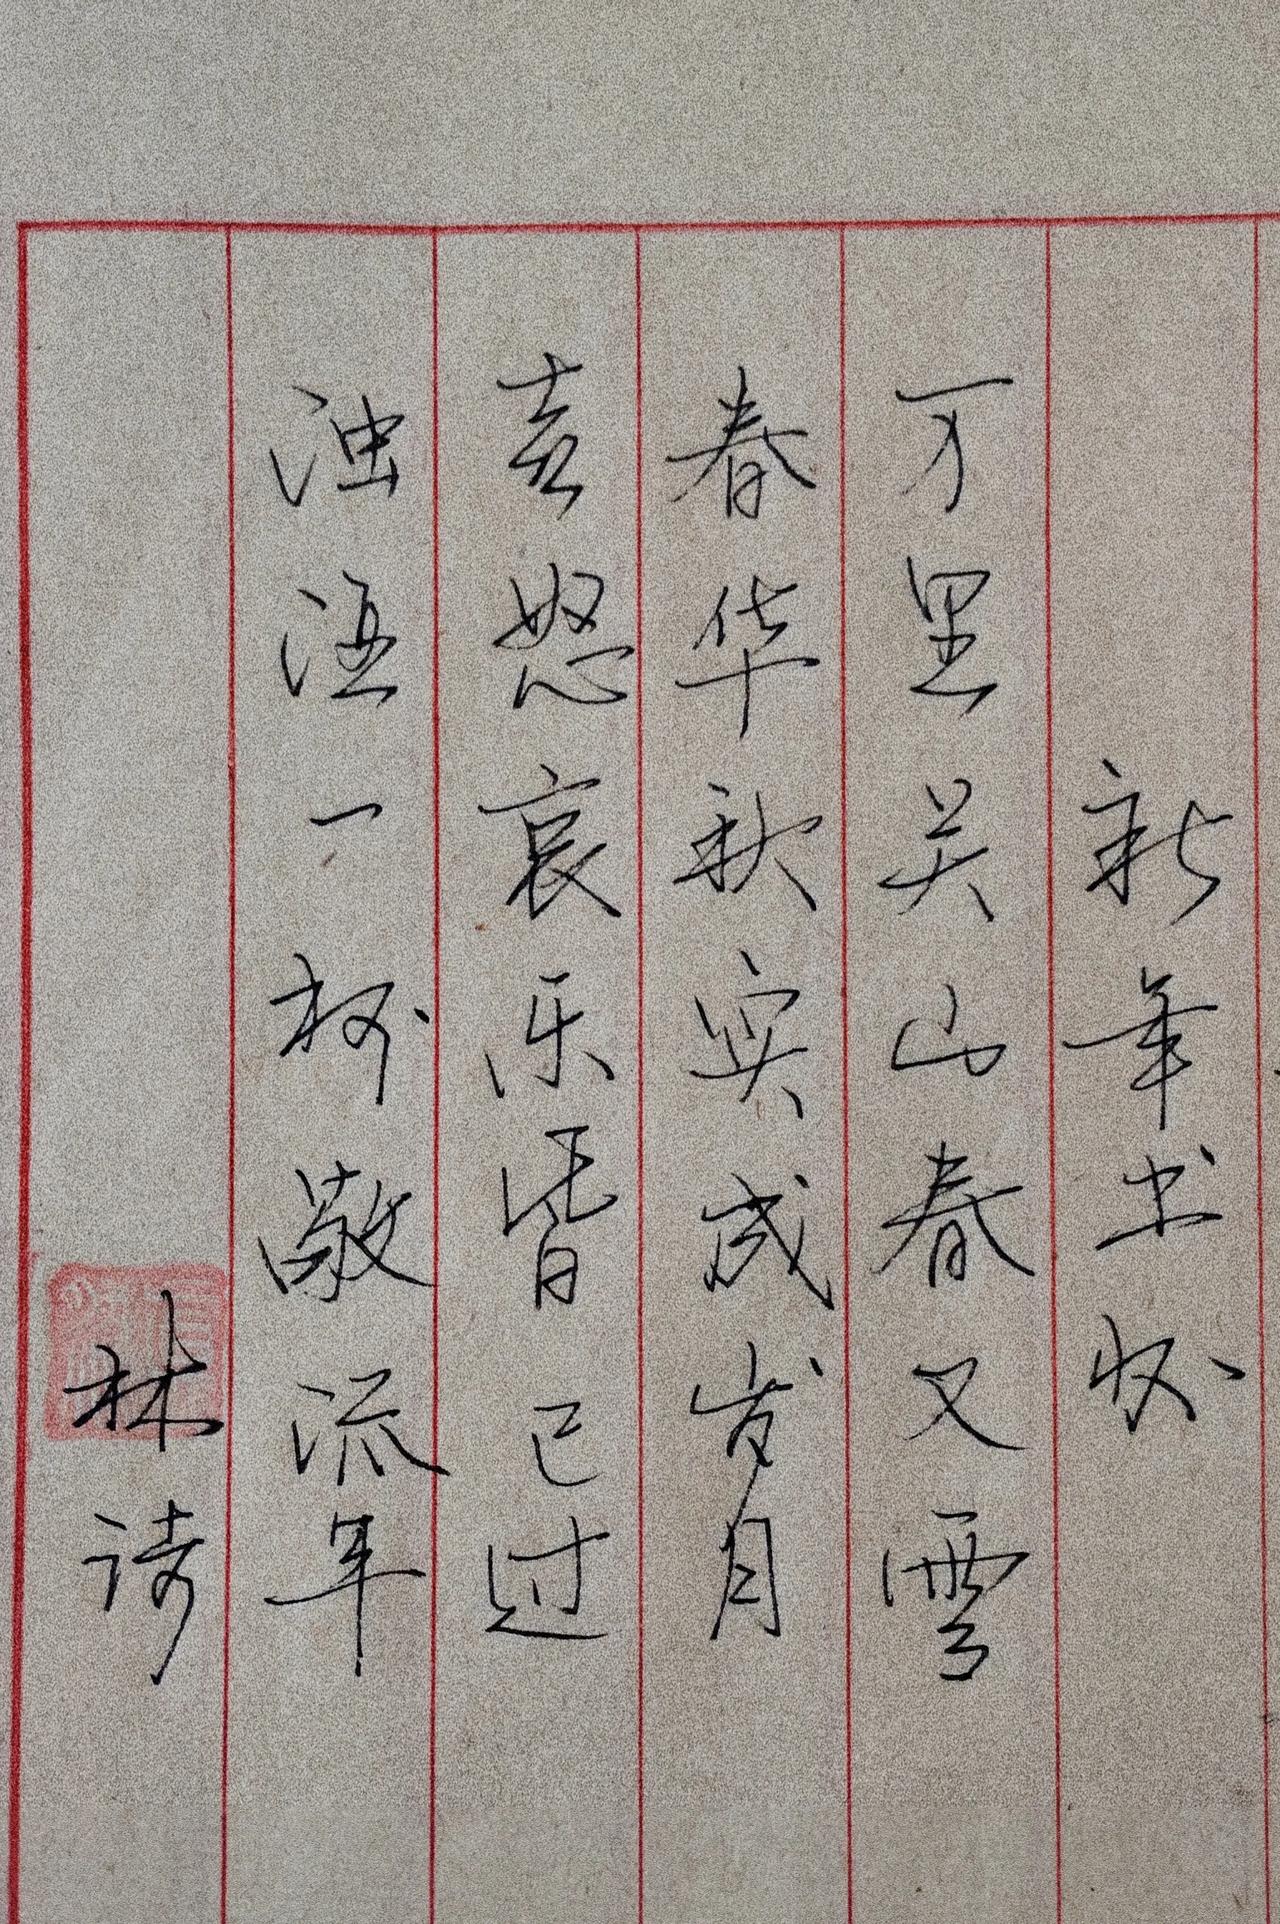 新年书怀
万里关山春又雪
春华秋实成岁月
喜怒哀乐皆已过
浊酒一杯敬流年
林诗